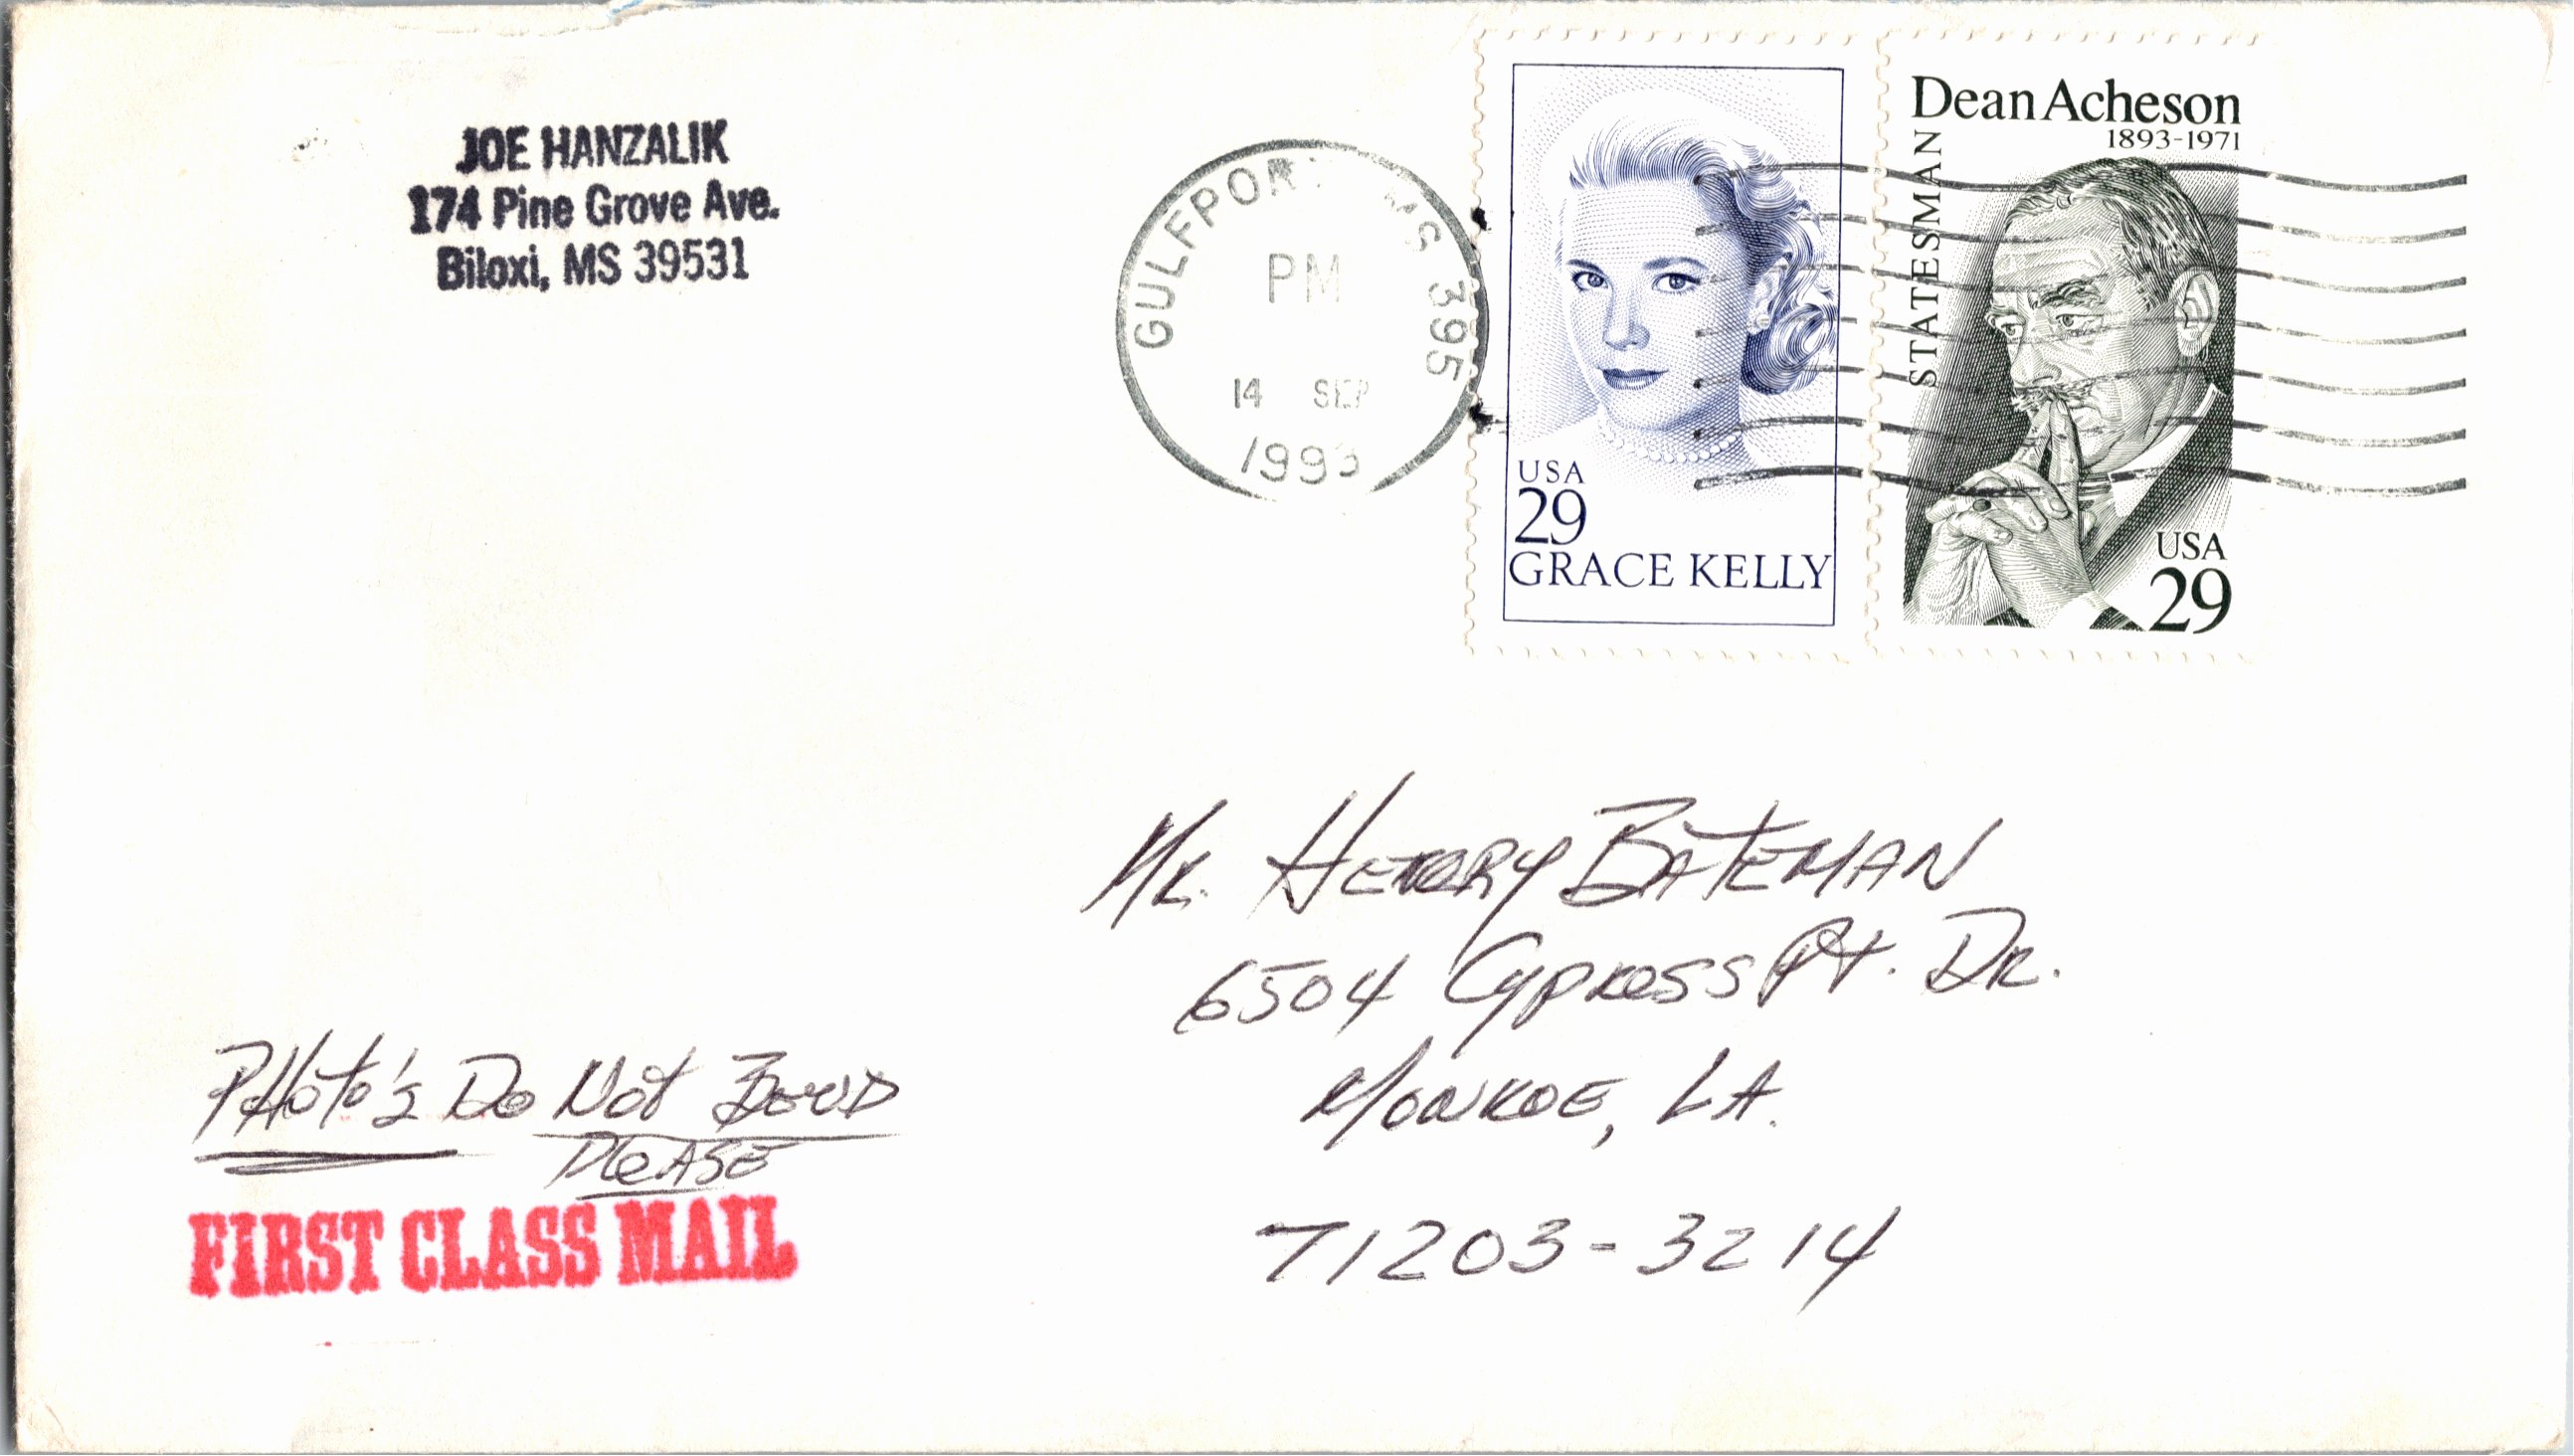 JOE HANZALIK
174 Pine Grove Ave.
Biloxi, MS 39531
GULFPORT MS 395
PM
14 SEP
1993
USA
29
GRACE KELLY
Dean Acheson
1893-1971
STATESMAN
USA
29
Mr. HENRY BATEMAN
6504 Cypress Pt. Dr.
MONROE, LA.
71203-3214
PHoto's Do Not BEND
PLEASE
FIRST CLASS MAIL